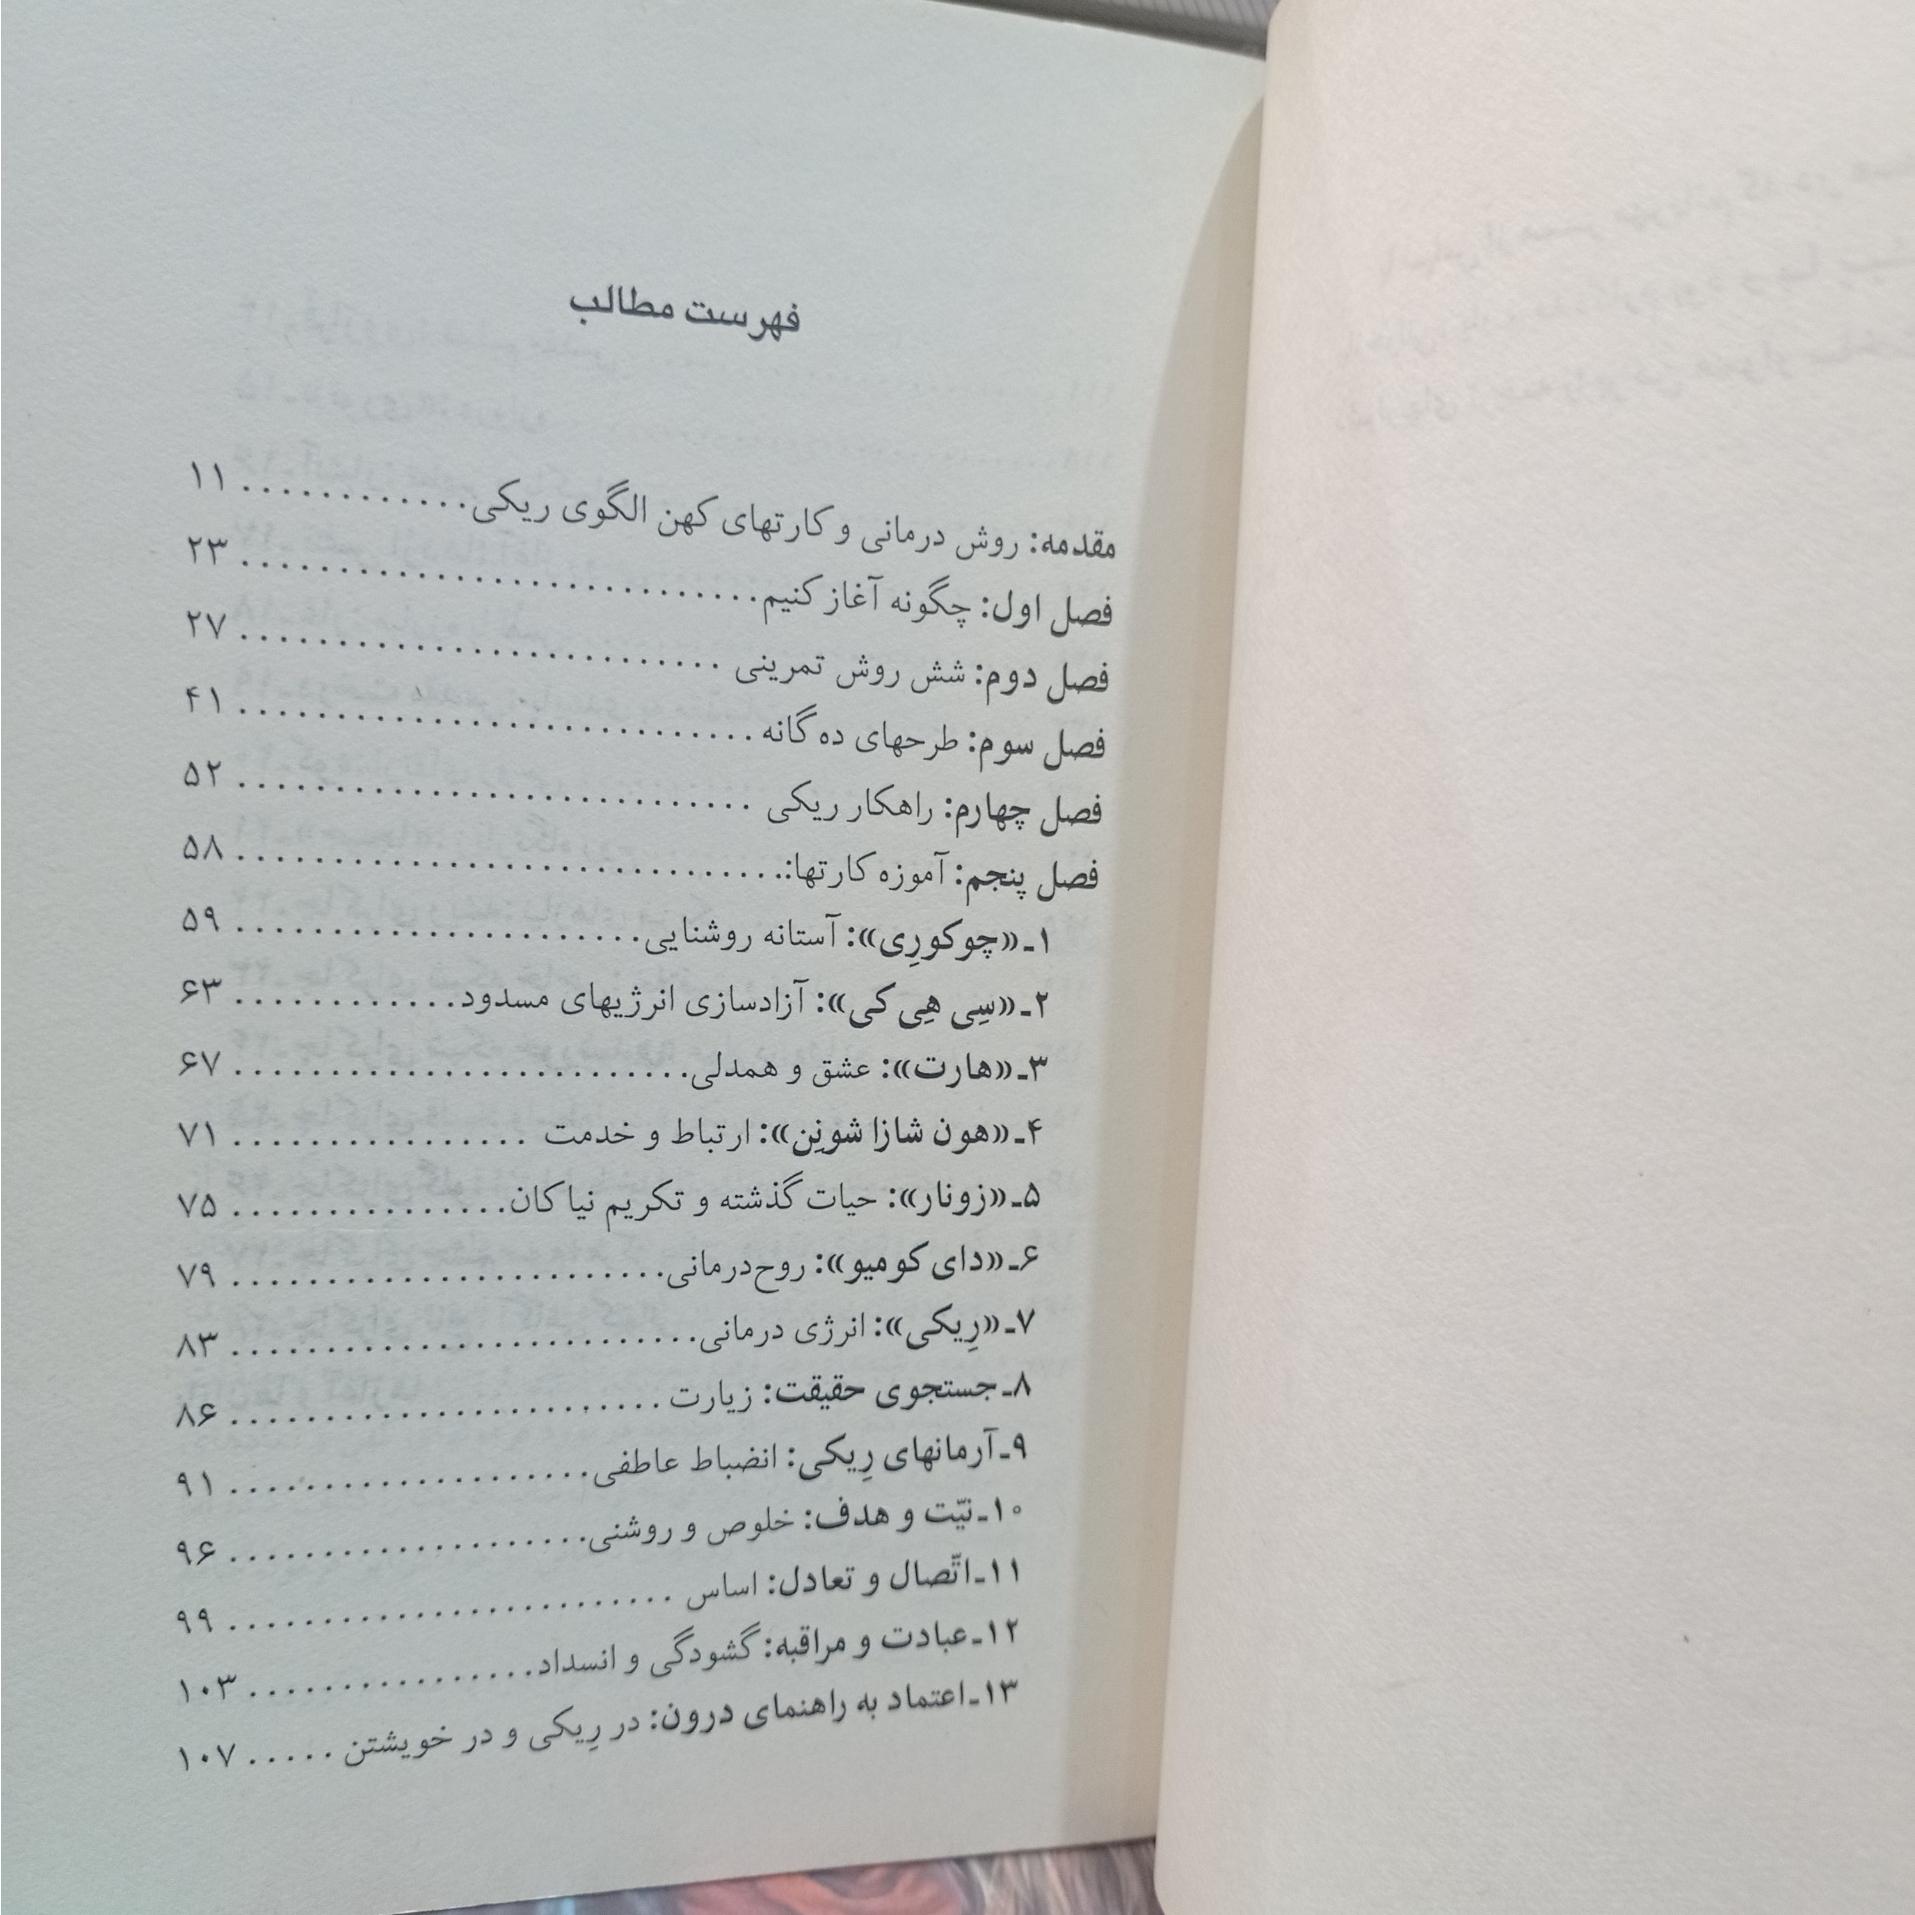 فهرست مطالب
مقدمه: روش درمانی و کارتهای کهن الگوی ریکی............ ۱۱
فصل اول: چگونه آغاز کنیم........................... ۲۳
فصل دوم: شش روش تمرینی ......................... ۲۷
فصل سوم: طرحهای ده گانه ........................... ۴۱
فصل چهارم: راهکار ریکی ........................... ۵۲
فصل پنجم: آموزه کارتها:............................. ۵۸
۱ـ «چوکورِی»: آستانه روشنایی..................... ۵۹
۲ـ «سِی هِی کی»: آزادسازی انرژیهای مسدود............ ۶۳
۳ـ «هارت»: عشق و همدلی........................ ۶۷
۴ـ «هون شازا شونِن»: ارتباط و خدمت ................ ۷۱
۵ـ «زونار»: حیات گذشته و تکریم نیاکان............... ۷۵
۶ـ «دای کومیو»: روح‌درمانی....................... ۷۹
۷ـ «رِیکی»: انرژی درمانی......................... ۸۳
۸ـ جستجوی حقیقت: زیارت ....................... ۸۶
۹ـ آرمانهای رِیکی: انضباط عاطفی................... ۹۱
۱۰ـ نیّت و هدف: خلوص و روشنی................... ۹۶
۱۱ـ اتّصال و تعادل: اساس ........................ ۹۹
۱۲ـ عبادت و مراقبه: گشودگی و انسداد............... ۱۰۳
۱۳ـ اعتماد به راهنمای درون: در رِیکی و در خویشتن ..... ۱۰۷